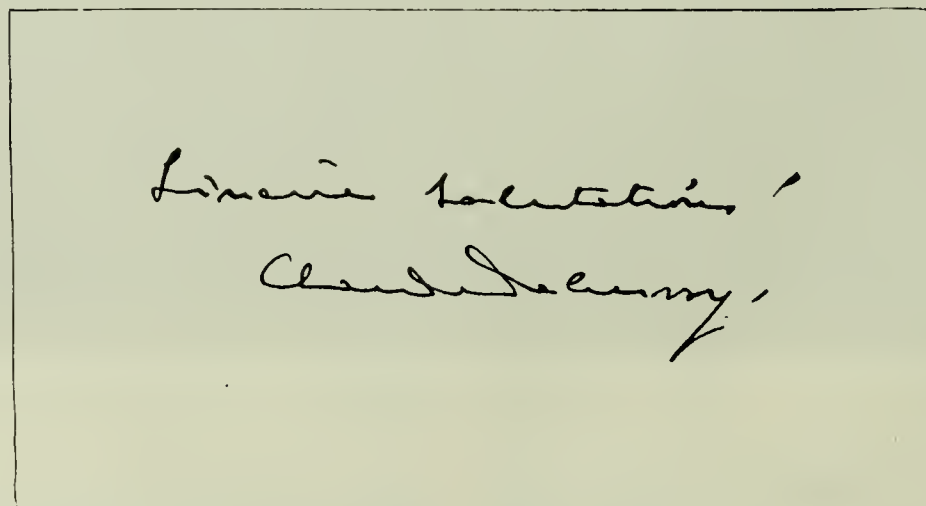 Sincères salutations
Claude Debussy.